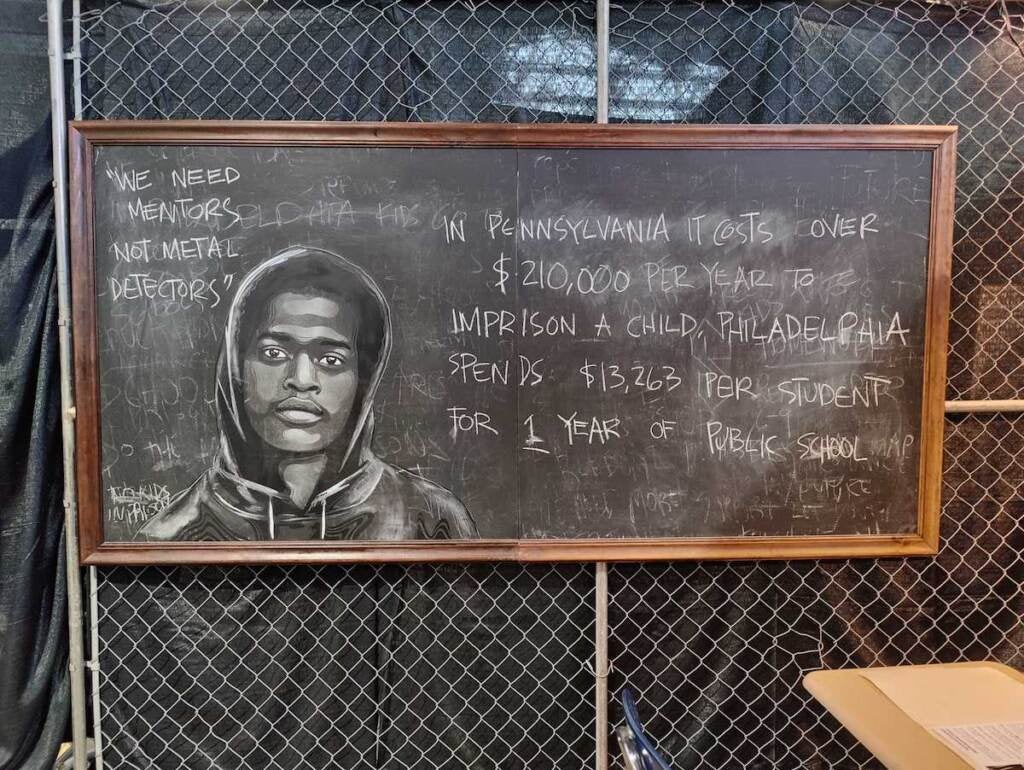 "WE NEED
MENTORS
NOT METAL
DETECTORS"
IN PENNSYLVANIA IT COSTS OVER
$210,000 PER YEAR TO
IMPRISON A CHILD, PHILADELPHIA
SPENDS $13,263 PER STUDENT
FOR 1 YEAR OF PUBLIC SCHOOL
KIDS
IN PRISON
KIDS
FUTURE
MORE
FUTURE